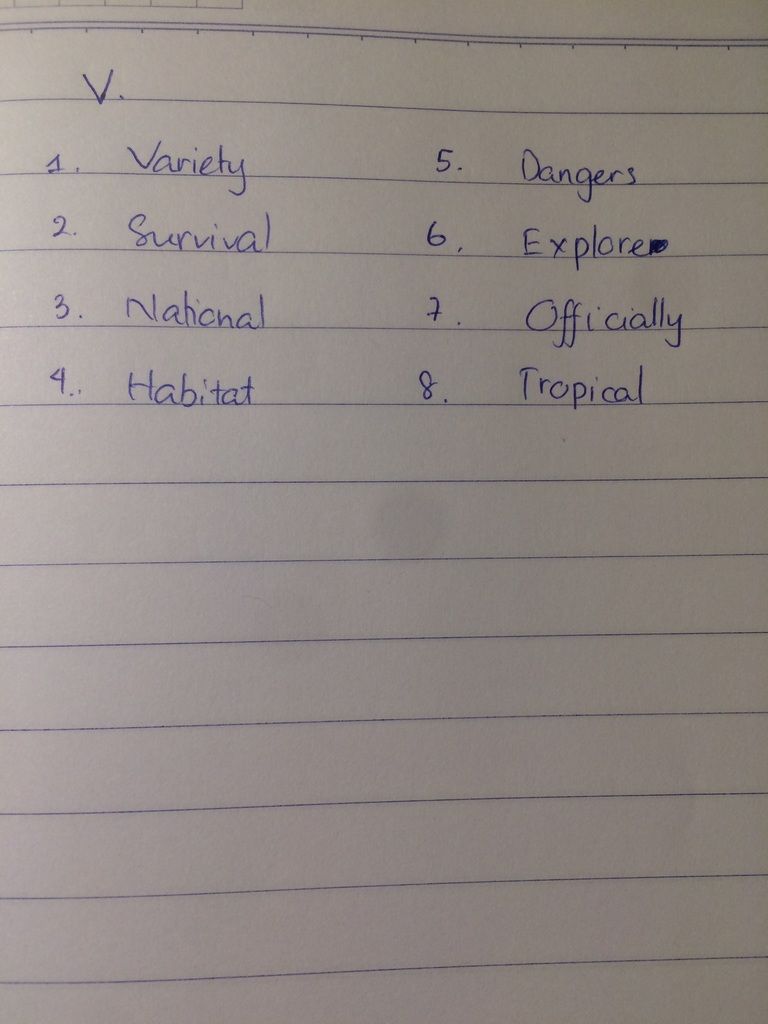 V.
1. Variety
2. Survival
3. National
4. Habitat
5. Dangers
6. Explore
7. Officially
8. Tropical